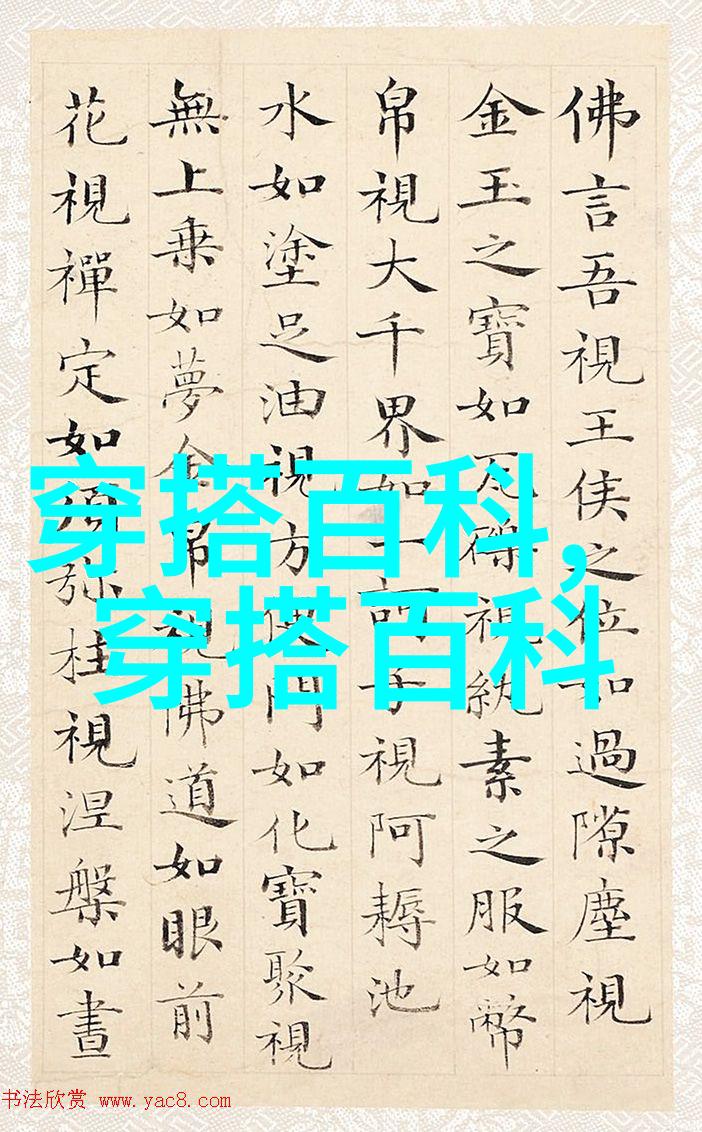 佛言吾視王侯之位如過隙塵視
金玉之寶如瓦礫視紈素之服如幣
帛視大千界如一訶子視阿耨池
水如塗足油視方便門如化寶聚視
無上乗如夢金帛視佛道如眼前
花視禪定如須弥柱視涅槃如晝
穿搭百科，
穿搭百科
书法欣赏 www.yac8.com